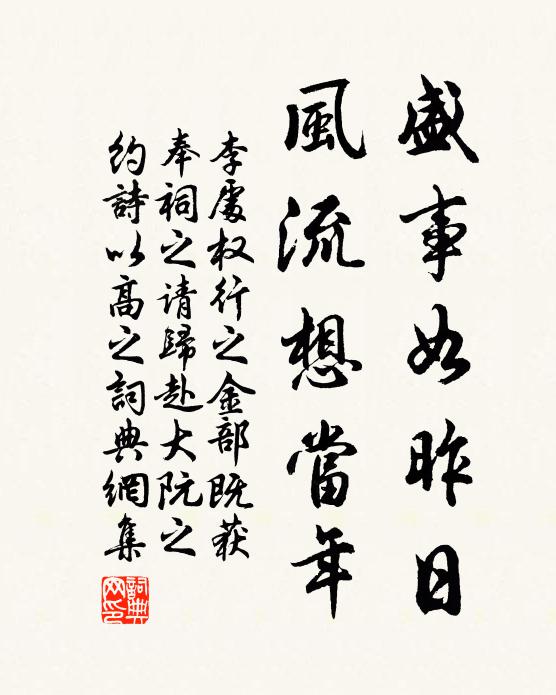 盛事如昨日
風流想當年
李處权行之金部既获
奉祠之请歸赴大阮之
約詩以高之詞典網集
詞典網印